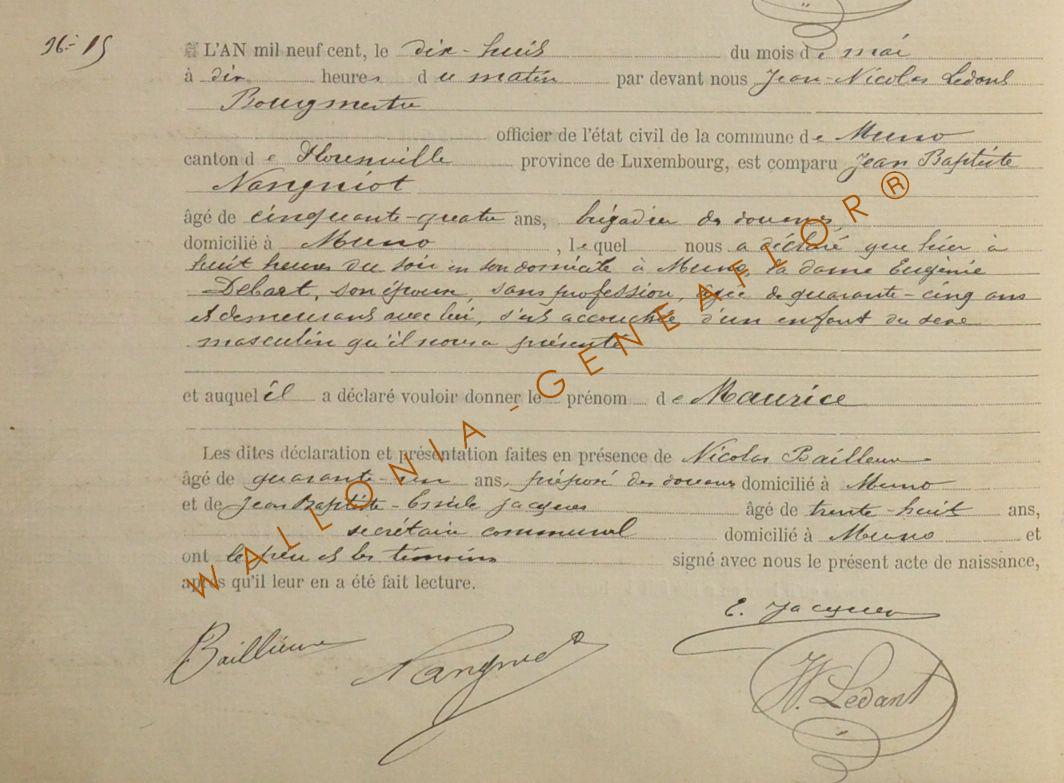 N°- 15
L'AN mil neuf cent, le dix-huit du mois de mai
à dix heures du matin par devant nous Jean-Nicolas Ledant
Bourgmestre
officier de l'état civil de la commune de Muno
canton de Florenville province de Luxembourg, est comparu Jean Baptiste
Nangniot
âgé de cinquante-quatre ans, brigadier des douanes,
domicilié à Muno, lequel nous a déclaré que hier à
huit heures du soir en son domicile à Muno, la dame Eugénie
Debart, son épouse, sans profession, âgée de quarante-cinq ans
et demeurant avec lui, s'est accouchée d'un enfant du sexe
masculin qu'il nous a présenté
et auquel il a déclaré vouloir donner le prénom de Maurice
Les dites déclaration et présentation faites en présence de Nicolas Bailleux
âgé de quarante-un ans, préposé des douanes domicilié à Muno
et de Jean Baptiste- Jacques âgé de trente-huit ans,
secrétaire communal domicilié à Muno et
ont le père et les témoins signé avec nous le présent acte de naissance,
après qu'il leur en a été fait lecture.
E. Jacques
Bailleux Nangniot
Ledant
WALLONIA-GENEAFLOR®